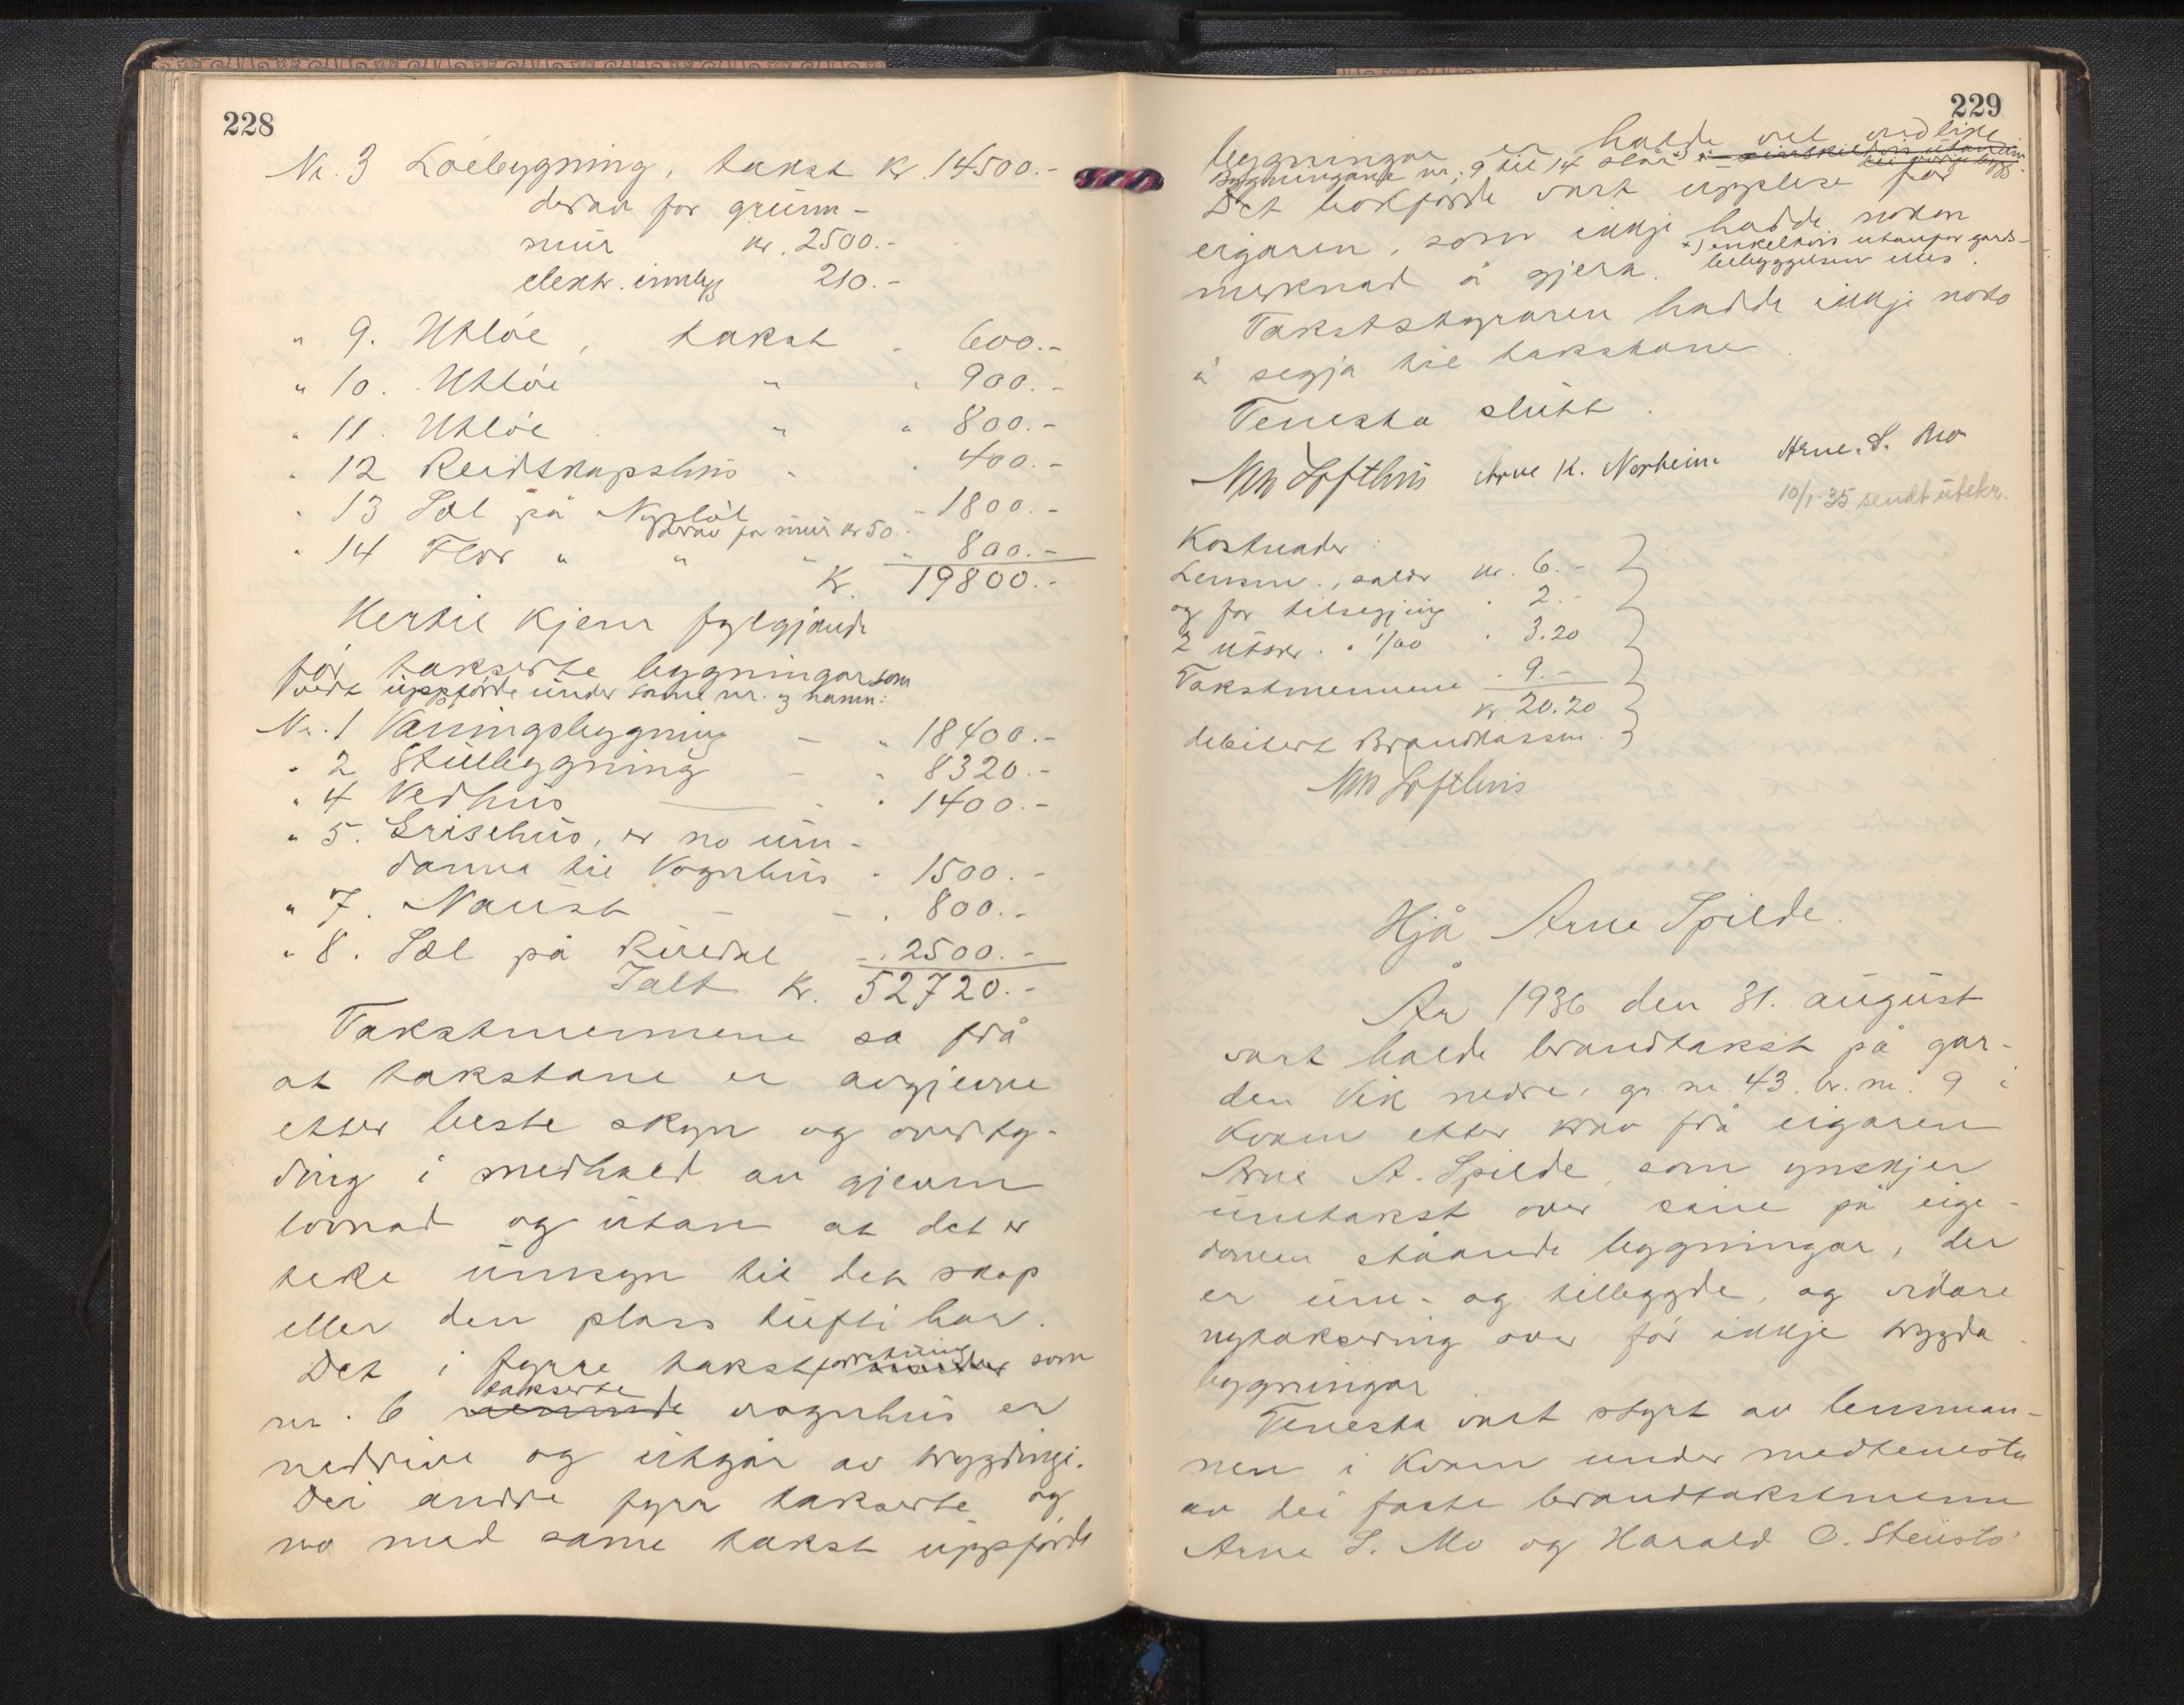 228
Nr. 3 Løebygning, takst kr. 14500.-
derav for grunn-
mur kr. 2500.-
elektr. innlegg 210.-
" 9. Utløe, takst " 600.-
" 10. Utløe " " 900.-
" 11. Utløe " " 800.-
" 12 Reidskapshus " " 400.-
" 13 Sel på - 1800.-
derav for mur kr 50.-
" 14 Flor " " " " 800.-
Kr. 19800.-
Hertil kjem fylgjande
før takserte bygningar som
vert uppførde under same nr. og namn:
Nr. 1 Våningsbygning - " 18400.-
" 2 Stullbygning - " 8320.-
" 4 Vedhus - " 1400.-
" 5. Grisehus, er no um-
danna til Vognhus " 1500.-
" 7. Naust - - " 800.-
" 8. Sel på - " 2500.-
Ialt kr. 52720.-
Takstmennene sa frå
at takstane er avgjevne
etter beste skyn og overty-
ding i medhald av gjevon
lovnad og utan at det er
teke umsyn til det skap
eller den plass tufti har.
Det i fyrre takstforretning som
nr. 6 takserte vognhus er
nedrive og utgår av trygdingi.
Dei andre fyrr takserte og
no med same takst uppførde
229
bygningar er halde vel vedlike
Bygningane nr. 9 til 14 står x)
Det bokførde vart upplese for
eigaren, som ikkje hadde nokon
x) enkeltvis utanfor gards-
merknad å gjera. bebyggelsen elles.
Takststyraren hadde ikkje noko
å segja til takstane.
Tenesta slutt.
Lofthus Arne K. Norheim Arne S. Mo
10/1-35 sendt utskr.
Kostnader:
Lensm., salær kr. 6.-
og for tilsegjing " 2.-
2 utskr. " 1/60 " 3.20
Takstmennene " 9.-
kr. 20.20
debitert Brandkassen.
Lofthus
Hjå Arne Spilde.
År 1936 den 31. august
vart halde brandtakst på gar-
den Vik nedre, gr. nr. 43. br. nr. 9 i
Kvam etter krav frå eigaren
Arne A. Spilde, som ynskjer
umtakst over sine på eige-
domen ståande bygningar, der
er um- og tilbygde, og vidare
nytaksering over før ikkje trygda
bygningar.
Tenesta vart styrt av lensman-
nen i Kvam under medtenesta
av dei faste brandtakstmenn
Arne S. Mo og Harald O. Steinstø